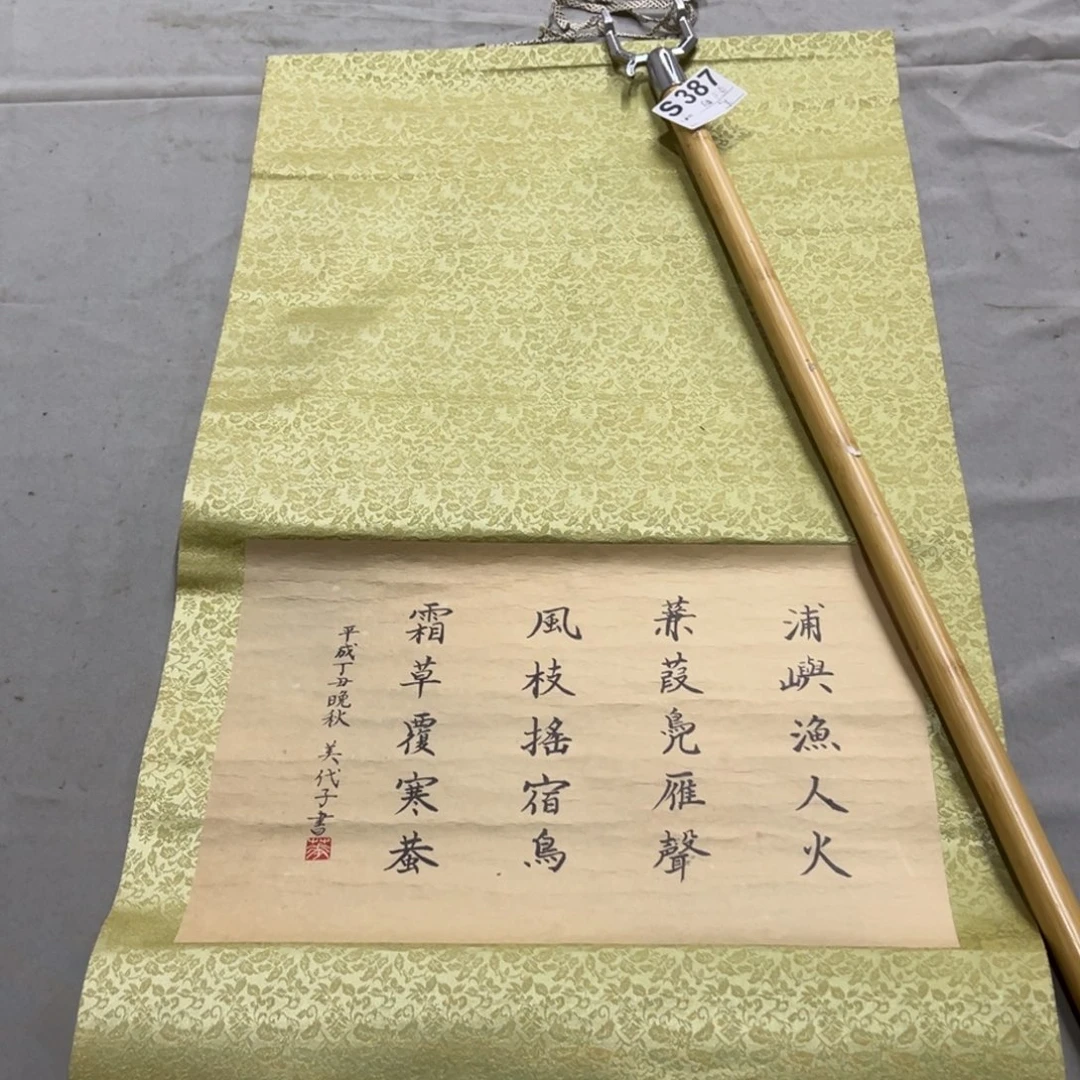 浦嶼漁人火
蒹葭鳧雁聲
風枝搖宿鳥
霜草覆寒蛬
平成丁丑晩秋 美代子書
S387